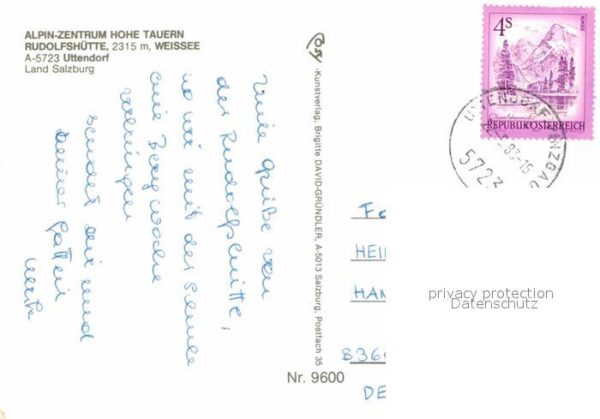 ALPIN-ZENTRUM HOHE TAUERN
RUDOLFSHÜTTE, 2315 m, WEISSEE
A-5723 Uttendorf
Land Salzburg
Viele Grüße von
der Rudolfshütte,
wo wir mit der Schule
eine Bergwoche
verbringen
sendet dir und
deiner
-Kunstverlag, Brigitte DAVID-GRÜNDLER, A-5013 Salzburg, Postfach 35
Nr. 9600
4S
ALMSEE
REPUBLIK ÖSTERREICH
UTTENDORF PINZGAU
83-15
5723
HEI
HA
836
DE
privacy protection
Datenschutz